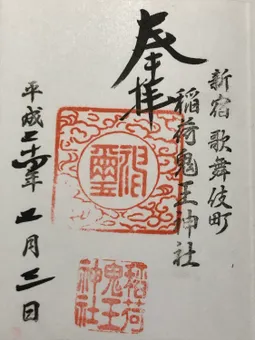 奉拝
新宿歌舞伎町
稲荷鬼王神社
平成二十四年二月三日
稲荷
鬼王
神社